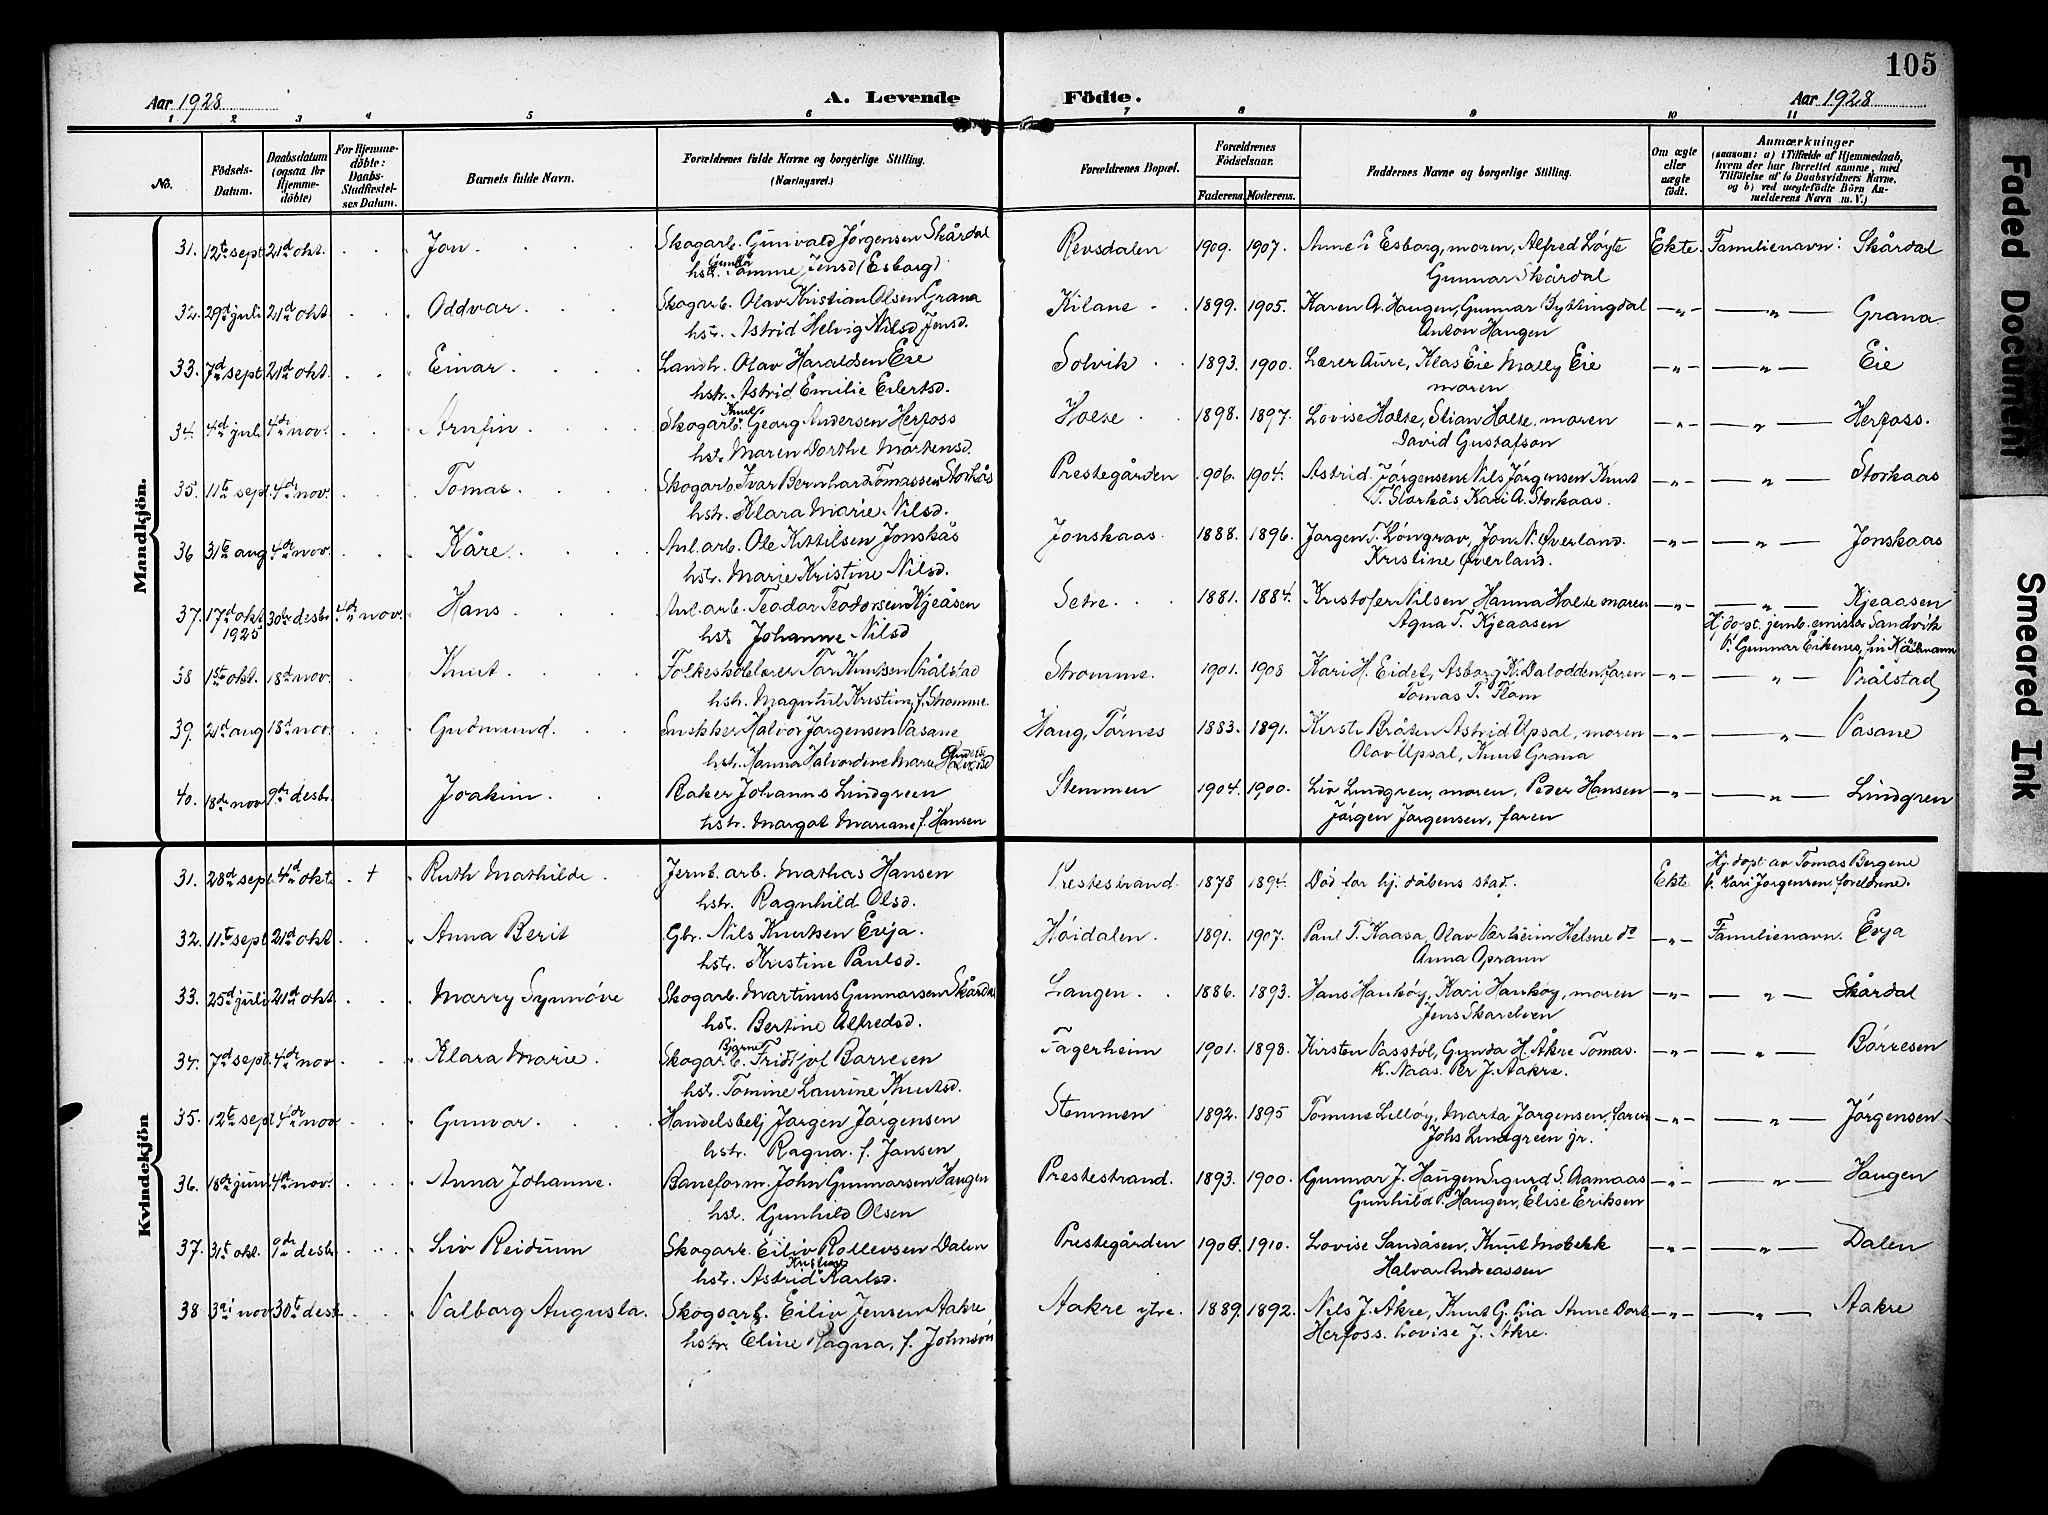 105
Aar 1928
A. Levende Födte.
Aar 1928
1 2 3 4 5 6 7 8 9 10 11
No.
Födsels-Datum.
Daabsdatum (ogsaa for Hjemme-döbte)
For Hjemme-döbte: Daabs-Stadfæstel-ses Datum.
Barnets fulde Navn.
Forældrenes fulde Navne og borgerlige Stilling.
(Næringsvei.)
Forældrenes Bopæl.
Forældrenes Födselsaar.
Faderens. Moderens.
Faddernes Navne og borgerlige Stilling.
Om ægte eller uægte födt.
Anmærkninger
(saasom: a) i Tilfælde af Hjemmedaab,
hvem der har forrettet samme, med
Tilföielse af to Daabsvidners Navne,
og b) ved uægtefödte Börn An-
melderens Navn m. V.)
Mandkjön.
31. 12te sept 21de okt. Jon. Skogarb. Gunvald Jørgensen Skårdal Revsdalen 1909. 1907. Anne Esborg, moren, Alfred Løyte Ekte. Familienavn: Skårdal
hstr. Tomine Jensd (Esborg) Gunnar Skårdal
32. 29de juli 21de okt Oddvar. Skogarb. Olav Kristian Olsen Grana Kilane 1899. 1905. Karen A. Haugen, Gunnar Grana
hstr. Astrid Helvig Nilsd Jensd. Anton Haugen
33. 7de sept 21de okt. Einar. Landh. Olav Haraldsen Eie Solvik 1893. 1900. Lærer Aure, Klas Eie Mally Eie Eie
hstr. Astrid Emilie Eilertsd. moren
34. 4de juli 4de nov. Arnfin. Skogarb. Knut Georg Andersen Herfoss Holte 1898. 1897. Lovise Holte, Stian Holte, moren Herfoss.
hstr. Maren Dorthe Martensd. David Gustafson
35. 11te sept 4de nov. Tomas. Skogarb. Ivar Bernhard Tomassen Storkås Prestegården 1906. 1904. Astrid Jørgensen Nils Jørgensen Knut Storkaas
hstr. Klara Marie Nilsd. T. Storkås Kari A. Storkaas.
36 31te aug 4de nov. Kåre. Anl.arb. Ole Kittilsen Jonskås Jonskaas. 1888. 1896. Jørgen T. Løngrav, Jon N. Øverland. Jonskaas
hstr. Marie Kristine Nilsd. Kristine Øverland.
37. 17de okt 1925 30te desbr. 4de nov. Hans. Anl.arb. Teodor Teodorsen Kjeåsen Setre. 1881. 1884. Kristofer Nilsen, Hanna Holte moren Kjeaasen
hstr Johanne Nilsd Agna T. Kjeaasen Hj.døpt. av emissær Sandvik
F. Gunnar Eikenes, Lin
38 1ste okt. 18de nov. Knut. Folkeshøl.lærer Tor Knutsen Vrålstad Strømme. 1901. 1908 Kari H. Eidet, Asborg K. Dalodden, faren Vrålstad
hstr. Magnhild Kristine, f. Strømme. Tomas T. Flom
39. 21de aug 18de nov. Gudmund. Snekker Halvor Jørgensen Vasane Haug, Tørnes 1883. 1891. Kirsti Bråten Astrid Upsal, moren Vasane
hstr. Hanna Halvordine Marie Olav Upsal, Knut Grana
40. 18de nov 9de desbr. Joakim. Baker Johannes Lindgreen Stemmen 1904. 1900. Liv Lindgren, moren, Peder Hansen Lindgren
hstr. Margot Mariane f. Hansen Jørgen Jørgensen, faren
Kvindekjön
31. 28de sept. 4de okt. † Ruth Mathilde. Jernb. arb. Mathias Hansen Prestestrand. 1878 1894. Død før hj.dåbens stad. Ekte Hj.døpt av Tomas Bergene
hstr. Ragnhild Olsd. F. Kari Jørgensen, foreldrene.
32. 11te sept 21de okt Anna Berit Gbr. Nils Knutsen Evja. Høidalen. 1891. 1907. Paul T. Kaasa, Olav Værheim Helene do Familienavn. Evja
hstr. Kristine Paulsd. Anna Oprann
33. 25de juli 21de okt. Marry Synnøve Skogarb. Martinus Gunnarsen Skårdal Langen. 1886. 1893. Hans Haukøy, Kari Haukøy, moren Skårdal
hstr. Bertine Alfredsd. Jens Skarelven
34. 7de sept. 4de nov Klara Marie. Skogarb. Bjarne Fridtjof Børresen Fagerheim 1901. 1898. Kirsten Vasstøl, Gunda H. Åkre Tomas. Børresen
hstr. Tomine Laurine Knutsd. K. Naas. Per J. Aakre.
35. 12te sept 4de nov Gunvor. Handelsbetj Jørgen Jørgensen Stemmen 1892. 1895 Tomine Lilløy, Marta Jørgensen, faren Jørgensen
hstr. Ragna. f. Jansen Johs Lindgreen jr.
36. 18de juni 4de nov. Anna Johanne. Baneform. John Gunnarsen Haugen Prestestrand. 1893. 1900. Gunnar J. Haugen Sigurd S. Aamaas Haugen
hst. Gunhild Olsen Gunhild P. Haugen, Elise Eriksen
37. 31te okt. 9de desbr. Liv Reidunn Skogarb. Eiliv Rollevsen Dalen Prestegården 1906. 1910. Lovise Sandåsen, Knut Mobekk Dalen
hstr. Astrid Kristine Karlsd. Halvor Andreassen
38 3die nov 30te desb Valborg Augusta. Skogsarb. Eiliv Jensen Aakre Aakre ytre. 1889. 1892. Nils J. Åkre, Knut G. Lia Anne Dort Aakre
hstr. Eline Ragna, f. Johnson Herfoss. Lovise J. Åkre.
Faded Document
Smeared Ink